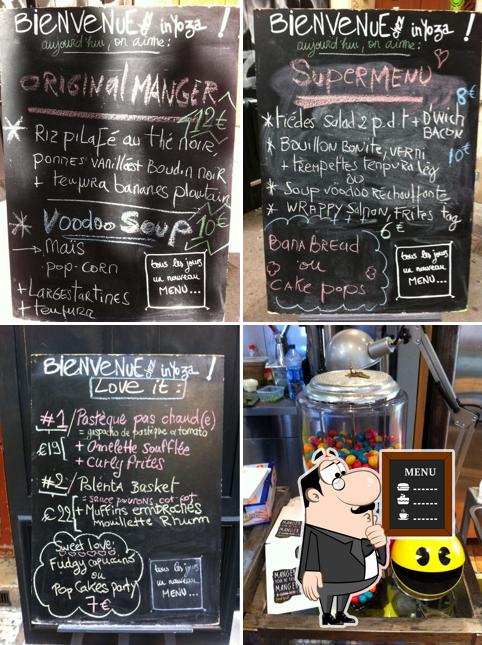 BIENVENUE in Yoza !
aujourd'hui, on aime :
ORIGINAL MANGER
12€
* RIZ PILAFÉ au thé noir,
POMMES VANILLÉES Boudin noir
+ tempura bananes plantain
* Voodoo Soup 10€
→ Maïs
POP-CORN
+ LARGES tartines
+ tempura
tous les jours
un nouveau
MENU...
BIENVENUE in Yoza !
aujourd'hui, on aime :
SUPERMENU
8€
* tiédes Salad 2 p.d.t + D'WICH
BACON
* BOUILLON Bonite, VERNI 10€
+ TREMPETTES tempura lég
ou
* SOUP VOODOO Réchauffante
* WRAPPY Salmon, FRITES tag
6€
BANABREAD
ou
CAKE POPS
tous les jours
un nouveau
MENU...
BIENVENUE in Yoza !
Love it :
#1/ Pastèque pas chaud(e)
= gaspacho de pastèque et tomato
€19 + Omelette Soufflée
+ Curly Frites
#2/ Polenta Basket
= sauce poivrons
€22 + Muffins embrochés
Mouillette Rhum
Sweet love :
Fudgy capucins
ou
Pop Cakes party
7€
tous les jours
un nouveau
MENU...
MENU
MANGER
MANGER